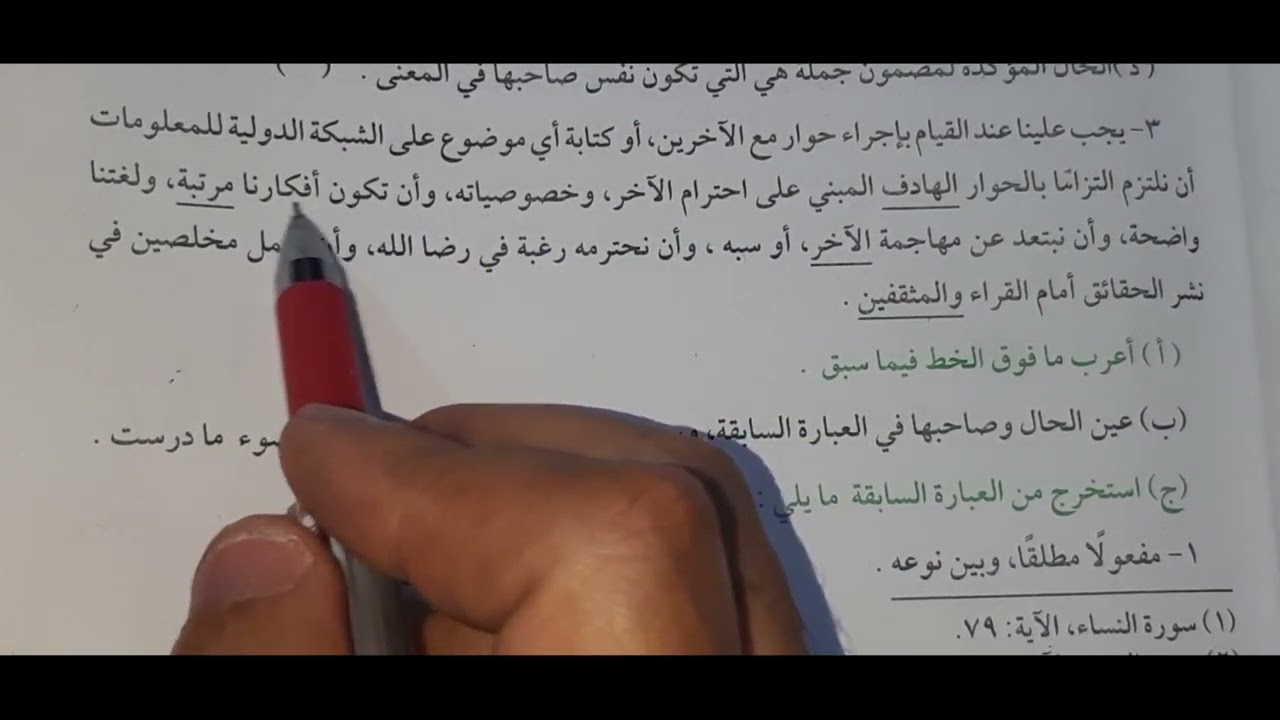 (د) الحال المؤكدة لمضمون جملة هي التي تكون نفس صاحبها في المعنى . ( )
٣- يجب علينا عند القيام بإجراء حوار مع الآخرين، أو كتابة أي موضوع على الشبكة الدولية للمعلومات
أن نلتزم التزامًا بالحوار الهادف المبني على احترام الآخر، وخصوصياته، وأن تكون أفكارنا مرتبة، ولغتنا
واضحة، وأن نبتعد عن مهاجمة الآخر، أو سبه ، وأن نحترمه رغبة في رضا الله، مخلصين في
نشر الحقائق أمام القراء والمثقفين .
(أ) أعرب ما فوق الخط فيما سبق .
(ب) عين الحال وصاحبها في العبارة السابقة، ما درست .
(ج) استخرج من العبارة السابقة ما يلي :
١- مفعولًا مطلقًا، وبين نوعه .
(١) سورة النساء، الآية: ٧٩.